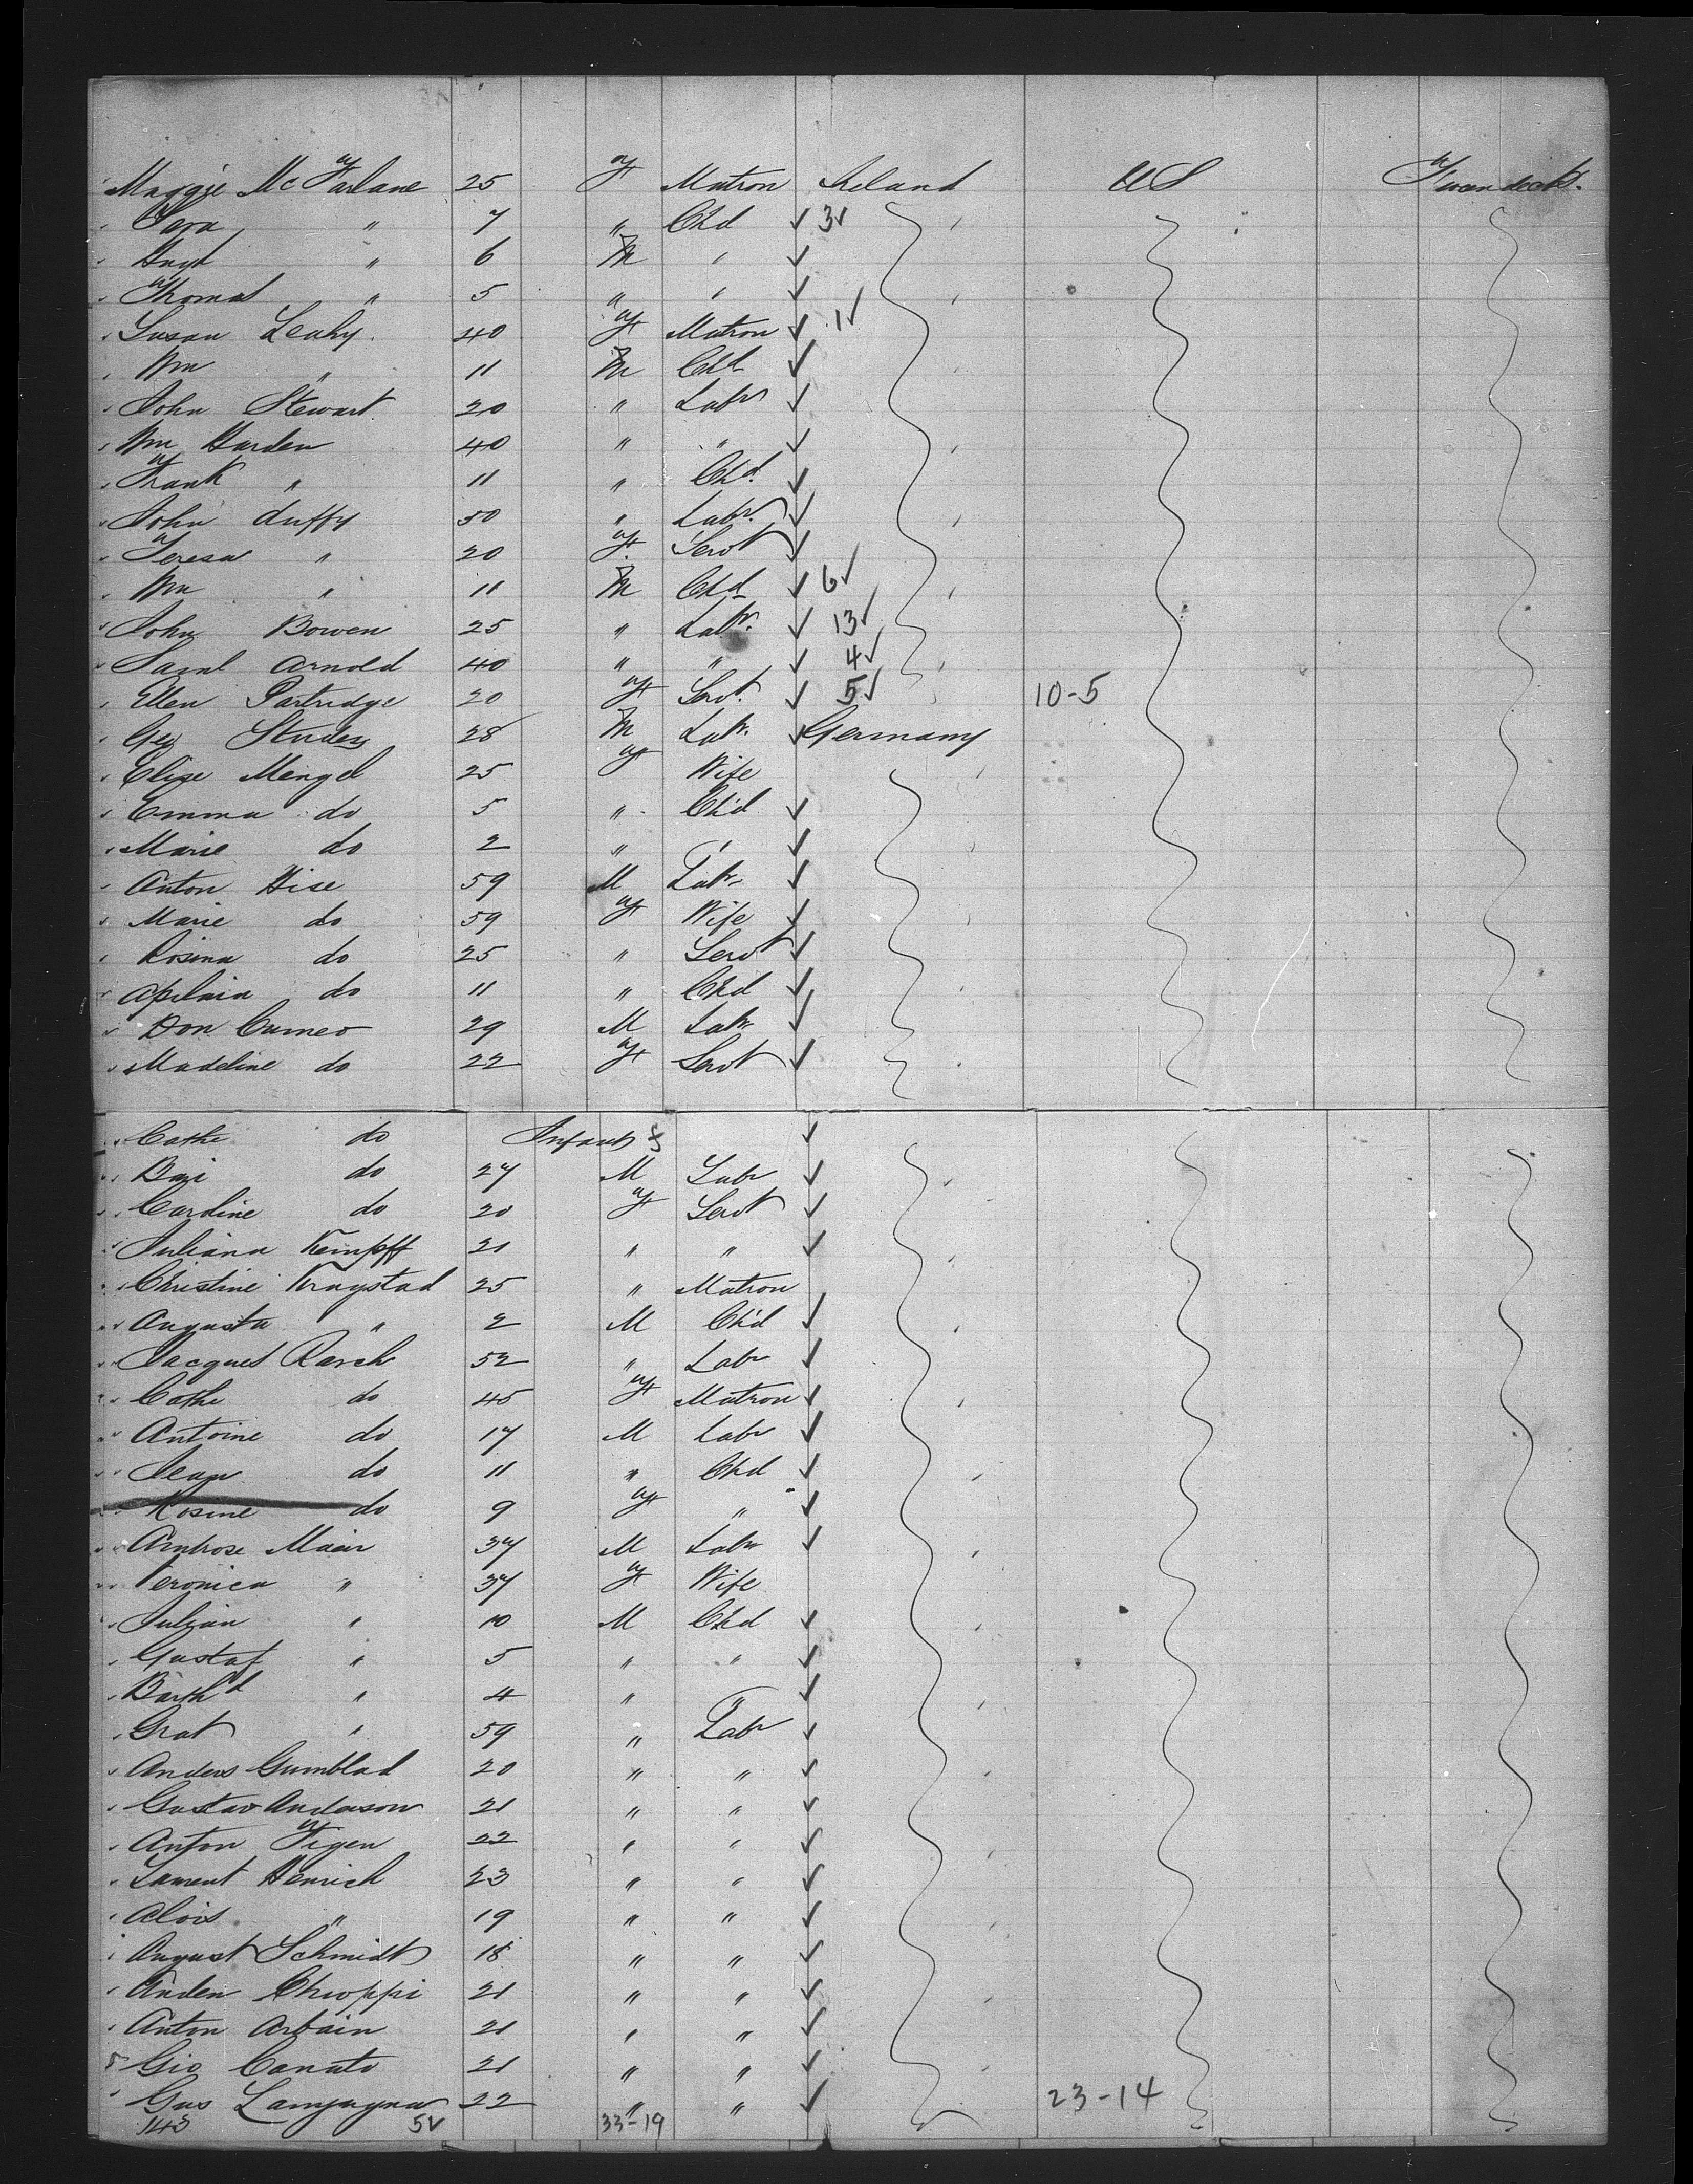 Maggie McFarlane 25 f Matron Ireland US Tween decks.
" 7 " Chd 3
Hugh " 6 M "
Thomas " 5 " "
Susan Leahy. 40 f Matron 1
Wm " 11 M Chd
John Stewart 20 " Labr
Wm Harden 40 " "
Frank " 11 " Chd.
John duffy 50 " Labr.
Teresa " 20 f. Servt
Wm " 11 M Chd 6
John Bowen 25 " Labr. 13
Saml Arnold 40 " " 4
Ellen Partridge 20 f Servt. 5 10-5
Geo 28 M Labr. Germany
Elise Mengel 25 f Wife
Emma do 5 " Chd
Marie do 2 " "
Anton Hise 59 M Labr
Marie do 59 f Wife
Rosina do 25 " Servt
do 11 " Chd
Don Cuneo 29 M Labr
Madeline do 22 f Servt
Cathe do Infant f
do 27 M Labr
Cardine do 20 f Servt
Juliana Kempff 21 " "
Christine Kragstad 25 " Matron
Augusta " 2 M Chd
Jacques Rasch 52 " Labr
Cathe do 45 f Matron
Antoine do 17 M Labr
Jean do 11 " Chd
Rosine do 9 f "
Ambrose Maier 37 M Labr
Veronica " 37 f Wife
Julian " 10 M Chd
Gustaf " 5 " "
Barthd " 4 " "
Grat " 59 " Labr
Anders Gumblad 20 " "
Gustav Anderson 21 " "
Anton Figen 22 " "
Laurent Henrich 23 " "
Alois " 19 " "
August Schmidt 18 " "
Anden Chioppi 21 " "
Anton Arbain 21 " "
Gio Canato 21 " "
Gus 22 " " 23-14
143 5 33-19